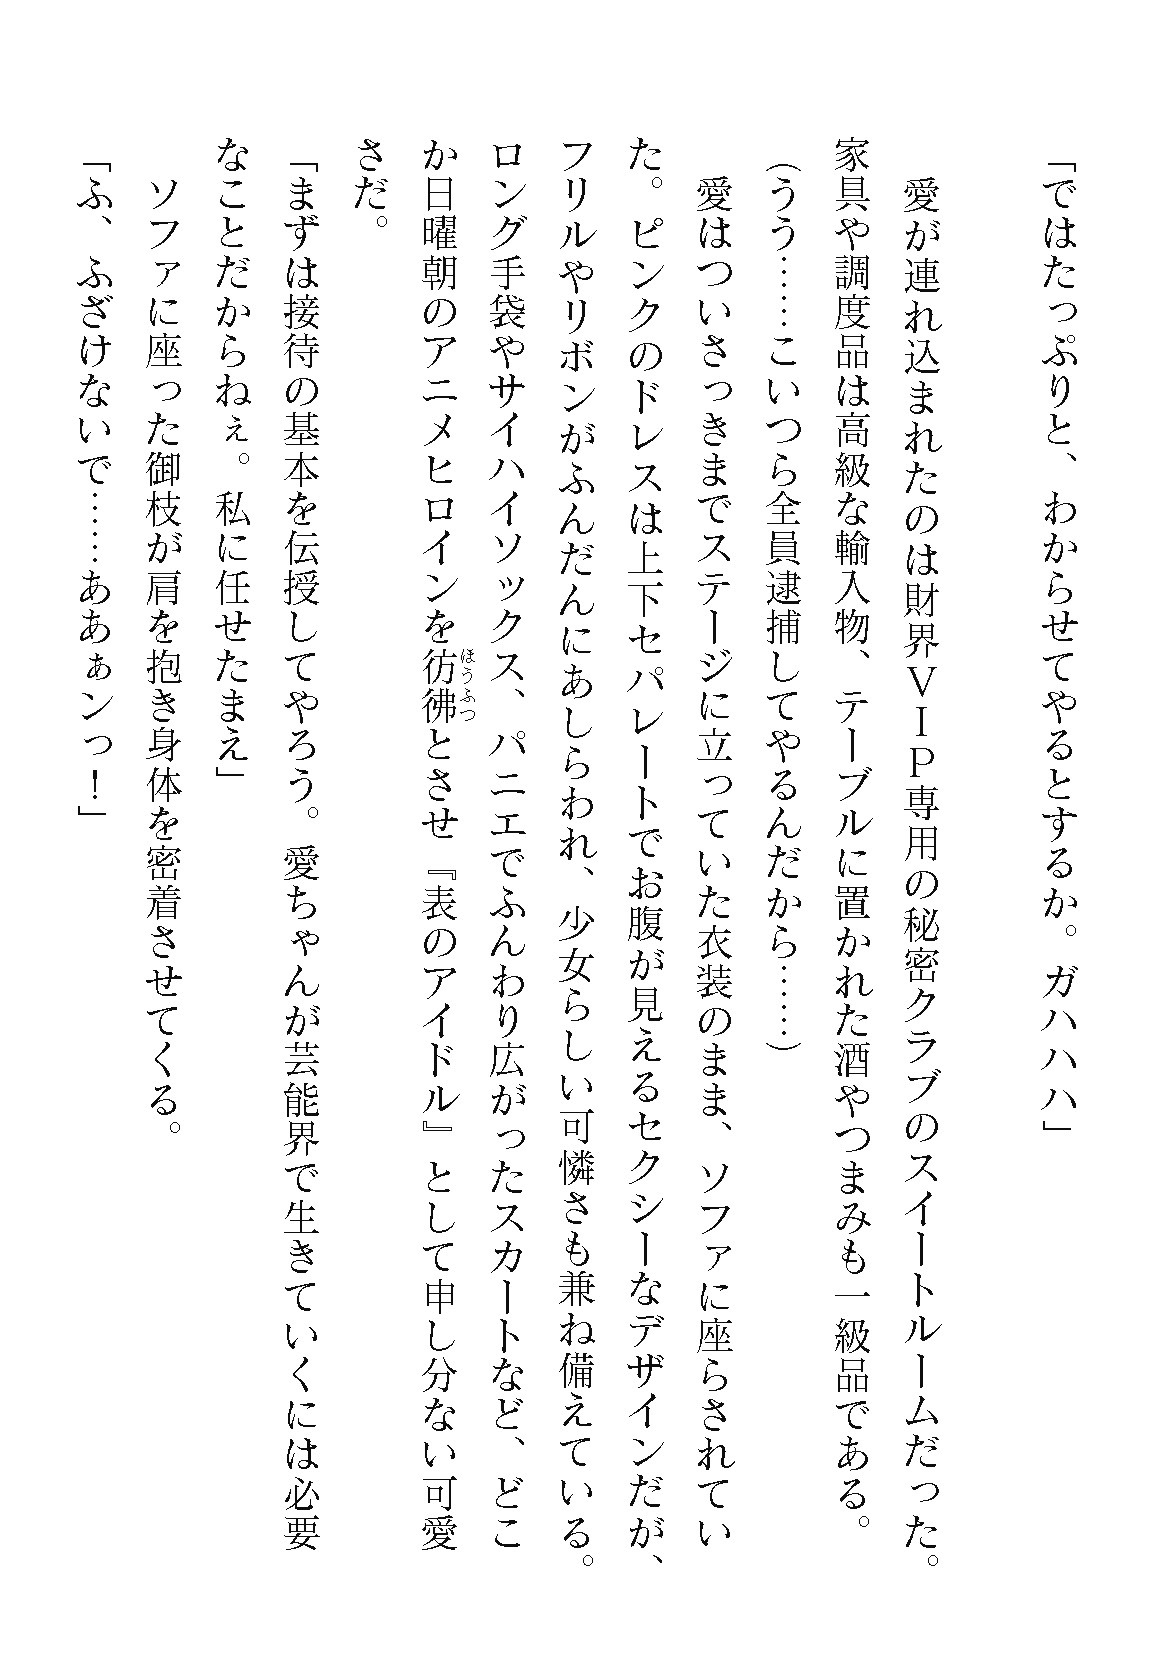 「ではたっぷりと、わからせてやるとするか。ガハハハ」
愛が連れ込まれたのは財界ＶＩＰ専用の秘密クラブのスイートルームだった。
家具や調度品は高級な輸入物、テーブルに置かれた酒やつまみも一級品である。
（うう……こいつら全員逮捕してやるんだから……）
愛はついさっきまでステージに立っていた衣装のまま、ソファに座らされてい
た。ピンクのドレスは上下セパレートでお腹が見えるセクシーなデザインだが、
フリルやリボンがふんだんにあしらわれ、少女らしい可憐さも兼ね備えている。
ロング手袋やサイハイソックス、パニエでふんわり広がったスカートなど、どこ
か日曜朝のアニメヒロインを彷彿とさせ『表のアイドル』として申し分ない可愛
ほうふつ
さだ。
「まずは接待の基本を伝授してやろう。愛ちゃんが芸能界で生きていくには必要
なことだからねぇ。私に任せたまえ」
ソファに座った御枝が肩を抱き身体を密着させてくる。
「ふ、ふざけないで……ああぁンっ！」